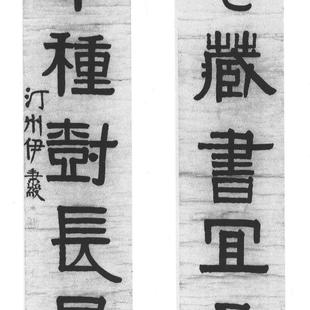 藏書宜
種樹長
汀州伊秉綬